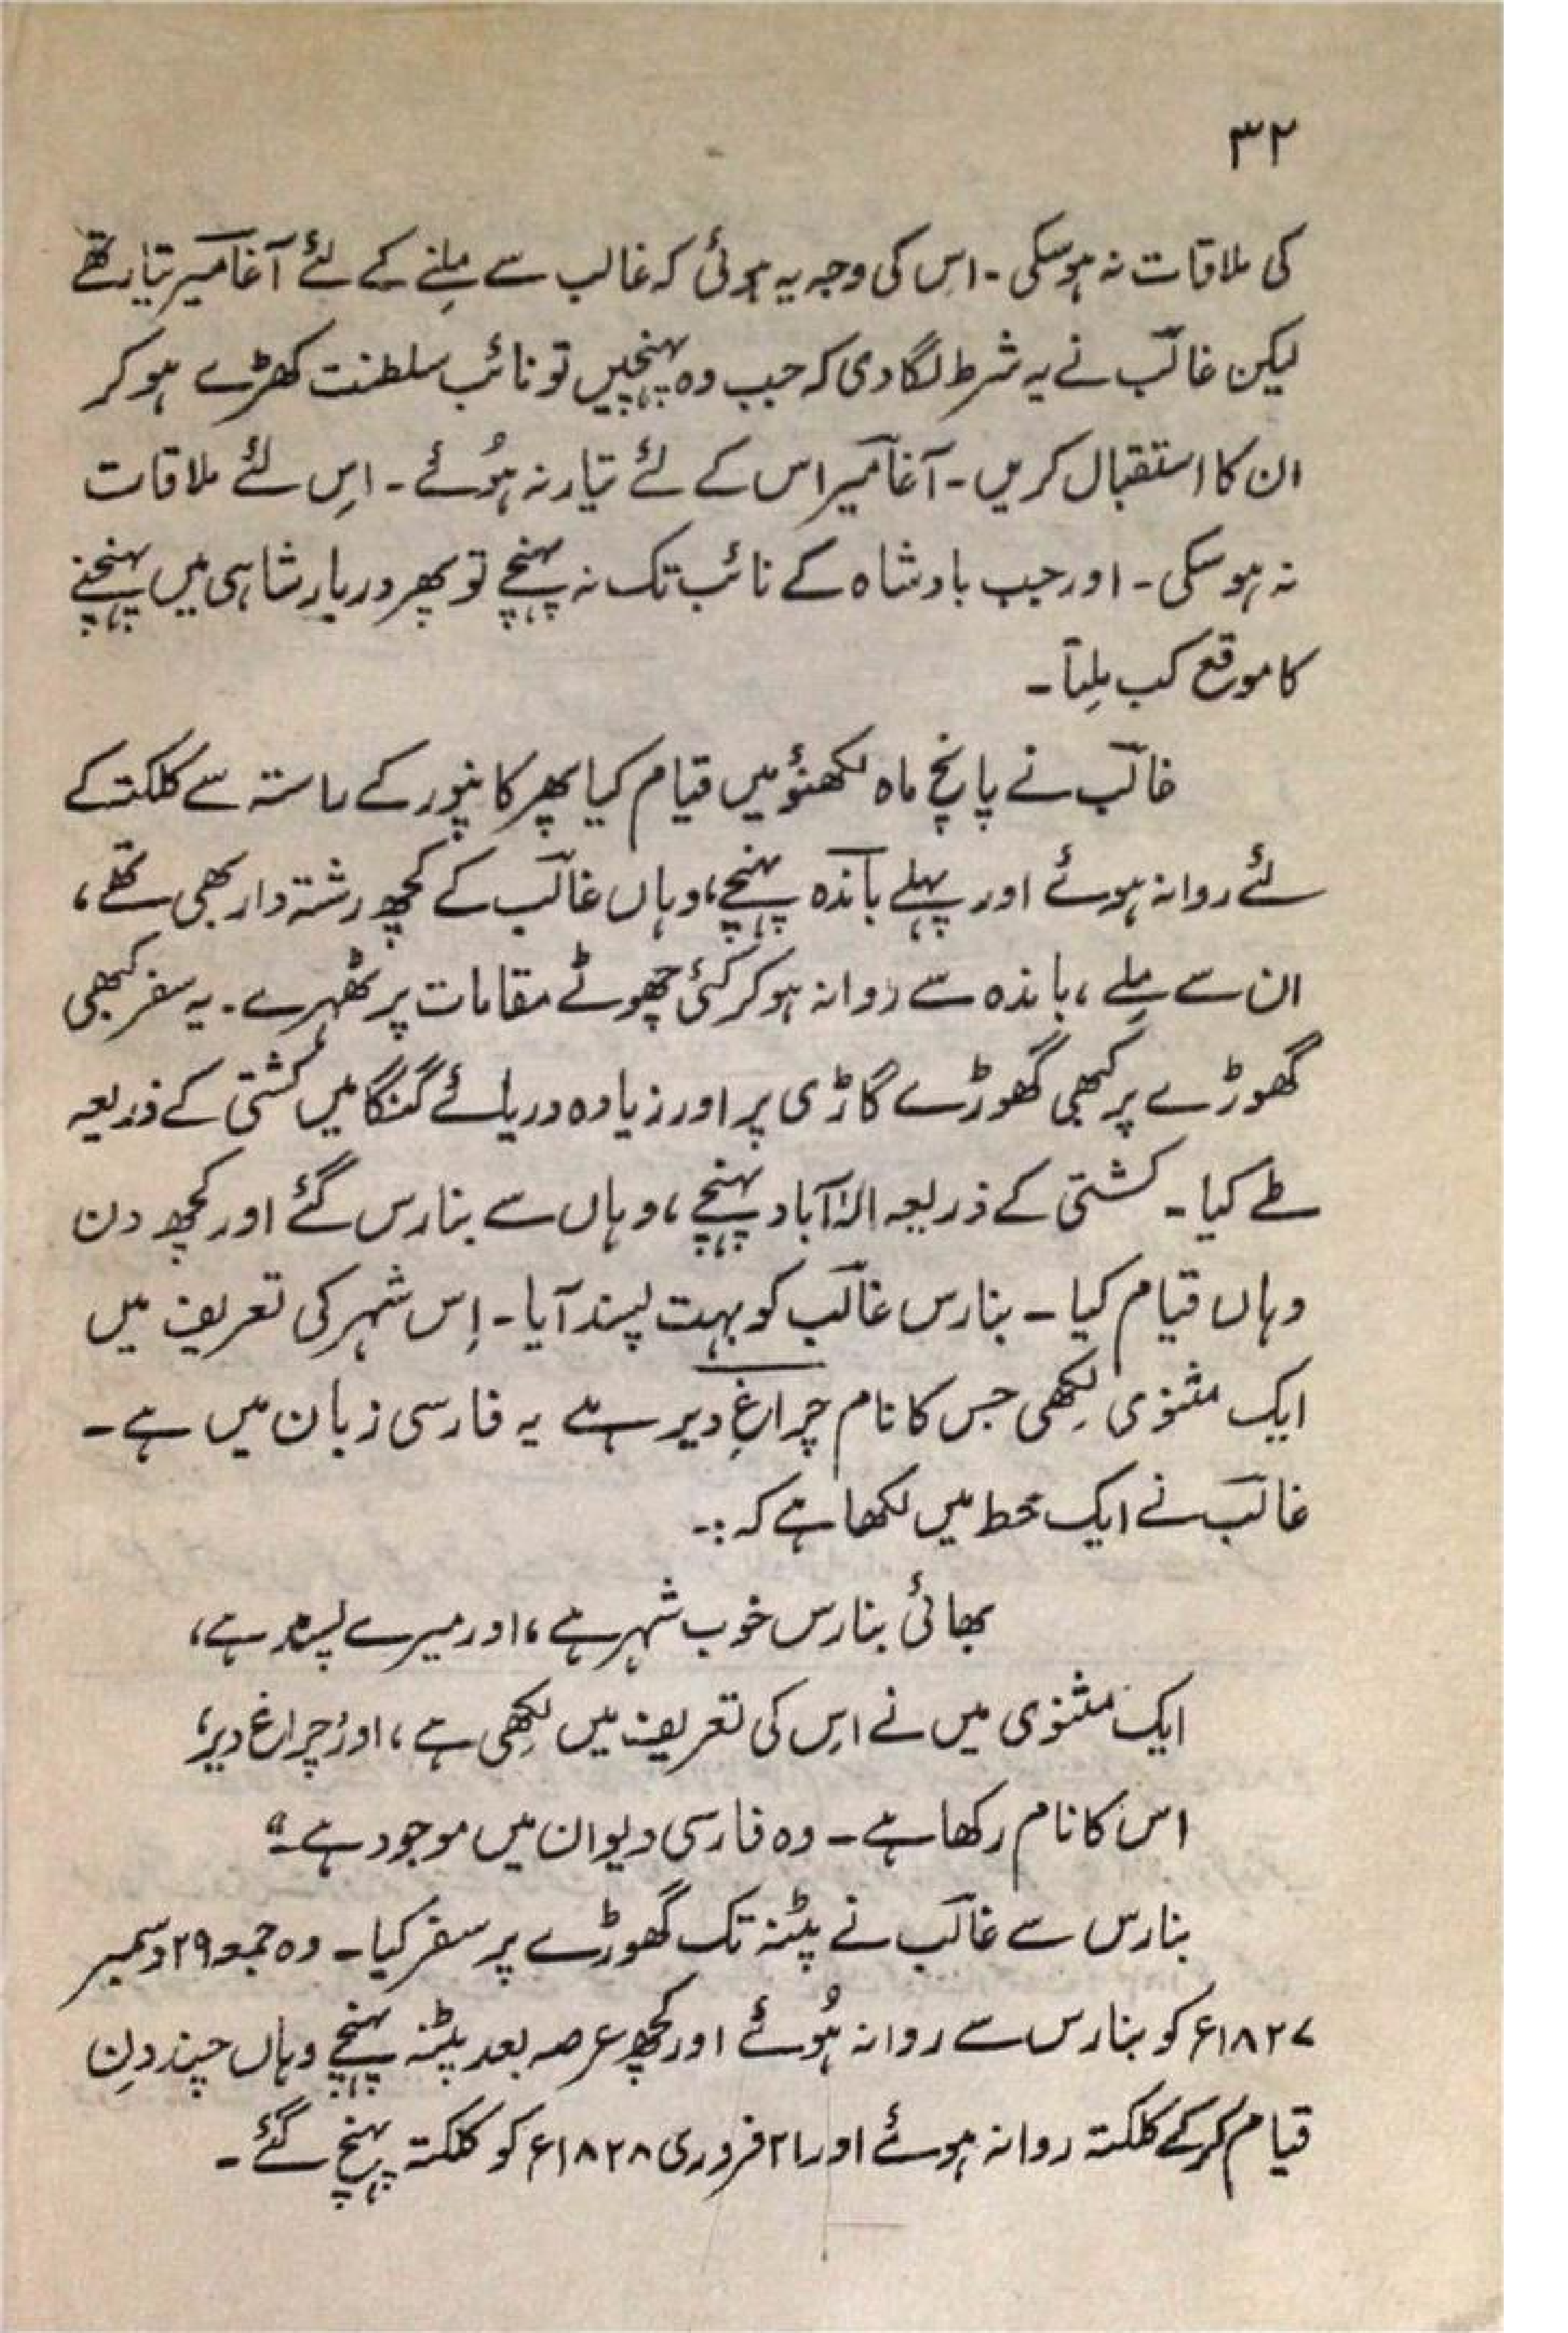 ۳۲
کی ملاقات نہ ہوسکی ۔ اس کی وجہ یہ ہوئی کہ غالب سے ملنے کے لئے آغا میر تیار تھے
لیکن غالبؔ نے یہ شرط لگا دی کہ جب وہ پہنچیں تو نائب سلطنت کھڑے ہو کر
ان کا استقبال کریں ۔ آغا میر اس کے لئے تیار نہ ہُوئے ۔ اِس لئے ملاقات
نہ ہوسکی ۔ اور جب بادشاہ کے نائب تک نہ پہنچے تو پھر دربار شاہی میں پہنچنے
کا موقع کب مِلتا ۔
غالبؔ نے پانچ ماہ لکھنؤ میں قیام کیا پھر کانپور کے راستہ سے کلکتہ کے
لئے روانہ ہوئے اور پہلے باندہ پہنچے، وہاں غالبؔ کے کچھ رشتہ دار بھی تھے،
ان سے مِلے، باندہ سے روانہ ہو کر کئی چھوٹے مقامات پر ٹھہرے ۔ یہ سفر کبھی
گھوڑے پر کبھی گھوڑے گاڑی پر اور زیادہ دریائے گنگا میں کشتی کے ذریعہ
طے کیا ۔ کشتی کے ذریعہ الہٰ آباد پہنچے، وہاں سے بنارس گئے اور کچھ دن
وہاں قیام کیا ۔ بنارس غالبؔ کو بہت پسند آیا ۔ اِس شہر کی تعریف میں
ایک مثنوی لِکھی جس کا نام چراغِ دیر ہے یہ فارسی زبان میں ہے ۔
غالبؔ نے ایک خط میں لکھا ہے کہ :۔
بھائی بنارس خوب شہر ہے، اور میرے پسند ہے،
ایک مثنوی میں نے اِس کی تعریف میں لِکھی ہے، اور ’چراغ دیر‘
اس کا نام رکھا ہے ۔ وہ فارسی دیوان میں موجود ہے ۔“
بنارس سے غالبؔ نے پٹنہ تک گھوڑے پر سفر کیا ۔ وہ جمعہ ۲۹ دسمبر
۱۸۲۷ء کو بنارس سے روانہ ہُوئے اور کچھ عرصہ بعد پٹنہ پہنچے وہاں چند دِن
قیام کر کے کلکتہ روانہ ہوئے اور ۲۱ فروری ۱۸۲۸ء کو کلکتہ پہنچ گئے ۔